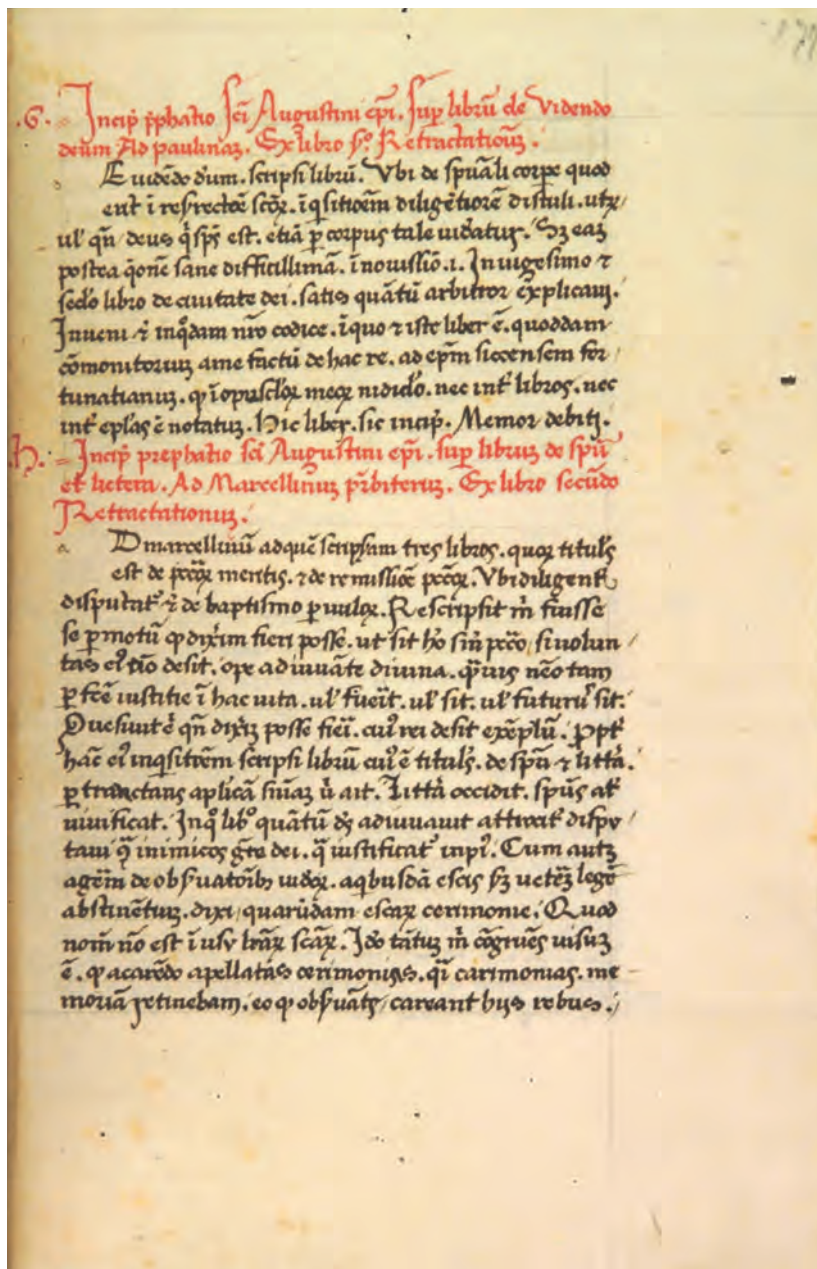 .G. Incip̄ p̄phatio sc̄i Augustini ep̄i. Sup̱ librū de Videndo
deum Ad paulinaʒ. Ex libro s̄o. Retractationū.
E uidēdo dūm. scripsi librū. Vbi de spūali corpore quod
erit ī resrectōe sc̄oꝝ. īq̄sitiōem diligētiorē distuli. utꝝ
ul' qn̄ deus q̄ sp̄s est. etiā ꝑ corpus tale uideatur. Sʒ eaʒ
postea q̄onē sane difficillimā. ī nouissīo .i. In uigesimo ⁊
sc̄do libro de ciuitate dei. satis quātū arbitror explicaui.
Inueni ⁊ inq̄dam nr̄o codice. īquo ⁊ iste liber ē. quoddam
cōmonitoriuʒ ame factū de hac re. ad ep̄m siccensem for
tunatianuʒ. q̄ ī opuscl'oꝝ meoꝝ nīdiclō. nec int' libros. nec
int' ep̄las ē notatuʒ. Hic liber. sic incip̄. Memor debiti.
.H. Incip̄ prephatio sc̄i Augustini ep̄i. sup̱ libruʒ de sp̄u
et lictera. Ad Marcellinuʒ p̄rbiteruʒ. Ex libro secūdo
Retractationuʒ.
D marcellinū adquē scripseram tres libros. quoꝝ titul's
est de pc̄c̄oꝝ meritis. ⁊ de remissiōe pc̄c̄oꝝ. Vbi diligent'
disputat' ⁊ de baptismo paruuloꝝ. Rescripsit m̄ fuisse
se ꝑmotū q̄ dixerim fieri posse. ut sit hō sin̄ pc̄c̄o, si uolun
tas ei' nō desit. ope adiuuāte diuina. q̄uis nēo tam
ꝑfc̄e iustitie ī hac uita. ul' fuerit. ul' sit. ul' futur' sit.
Quesiuit ē qn̄ dixeriʒ posse fieri. cui' rei desit exēplū. Propt'
hāc ei' inq̄sitiōem scripsi librū cui' ē titul's. de sp̄u ⁊ litt̄a.
ꝑtractans aplīcā sn̄iaʒ ū ait. Litt̄a occidit. spūs at'
uiuificat. Inq̄ lib̄o quātū d̄s adiuuauit acriter dispu
taui ꝯ inimicos gr̄e dei. q̄ iustificat' inpi'. Cum autʒ
agerem de obseruatōibʒ iudeoꝝ. aq̄busdā escis sʒ ueterē legē
abstinētiuʒ. dixi, quarūdam escaꝝ cerimonie. Quod
nomē nō est ī usu lr̄aꝝ sc̄aꝝ. Ido tātuʒ m̄ cōgruēs uisuʒ
ē. q̄ acarēdo apellatas cerimonias. q̄i carimonias. me
moriā retinebam. eo q̄ obseruātes, careant hijs rebus.